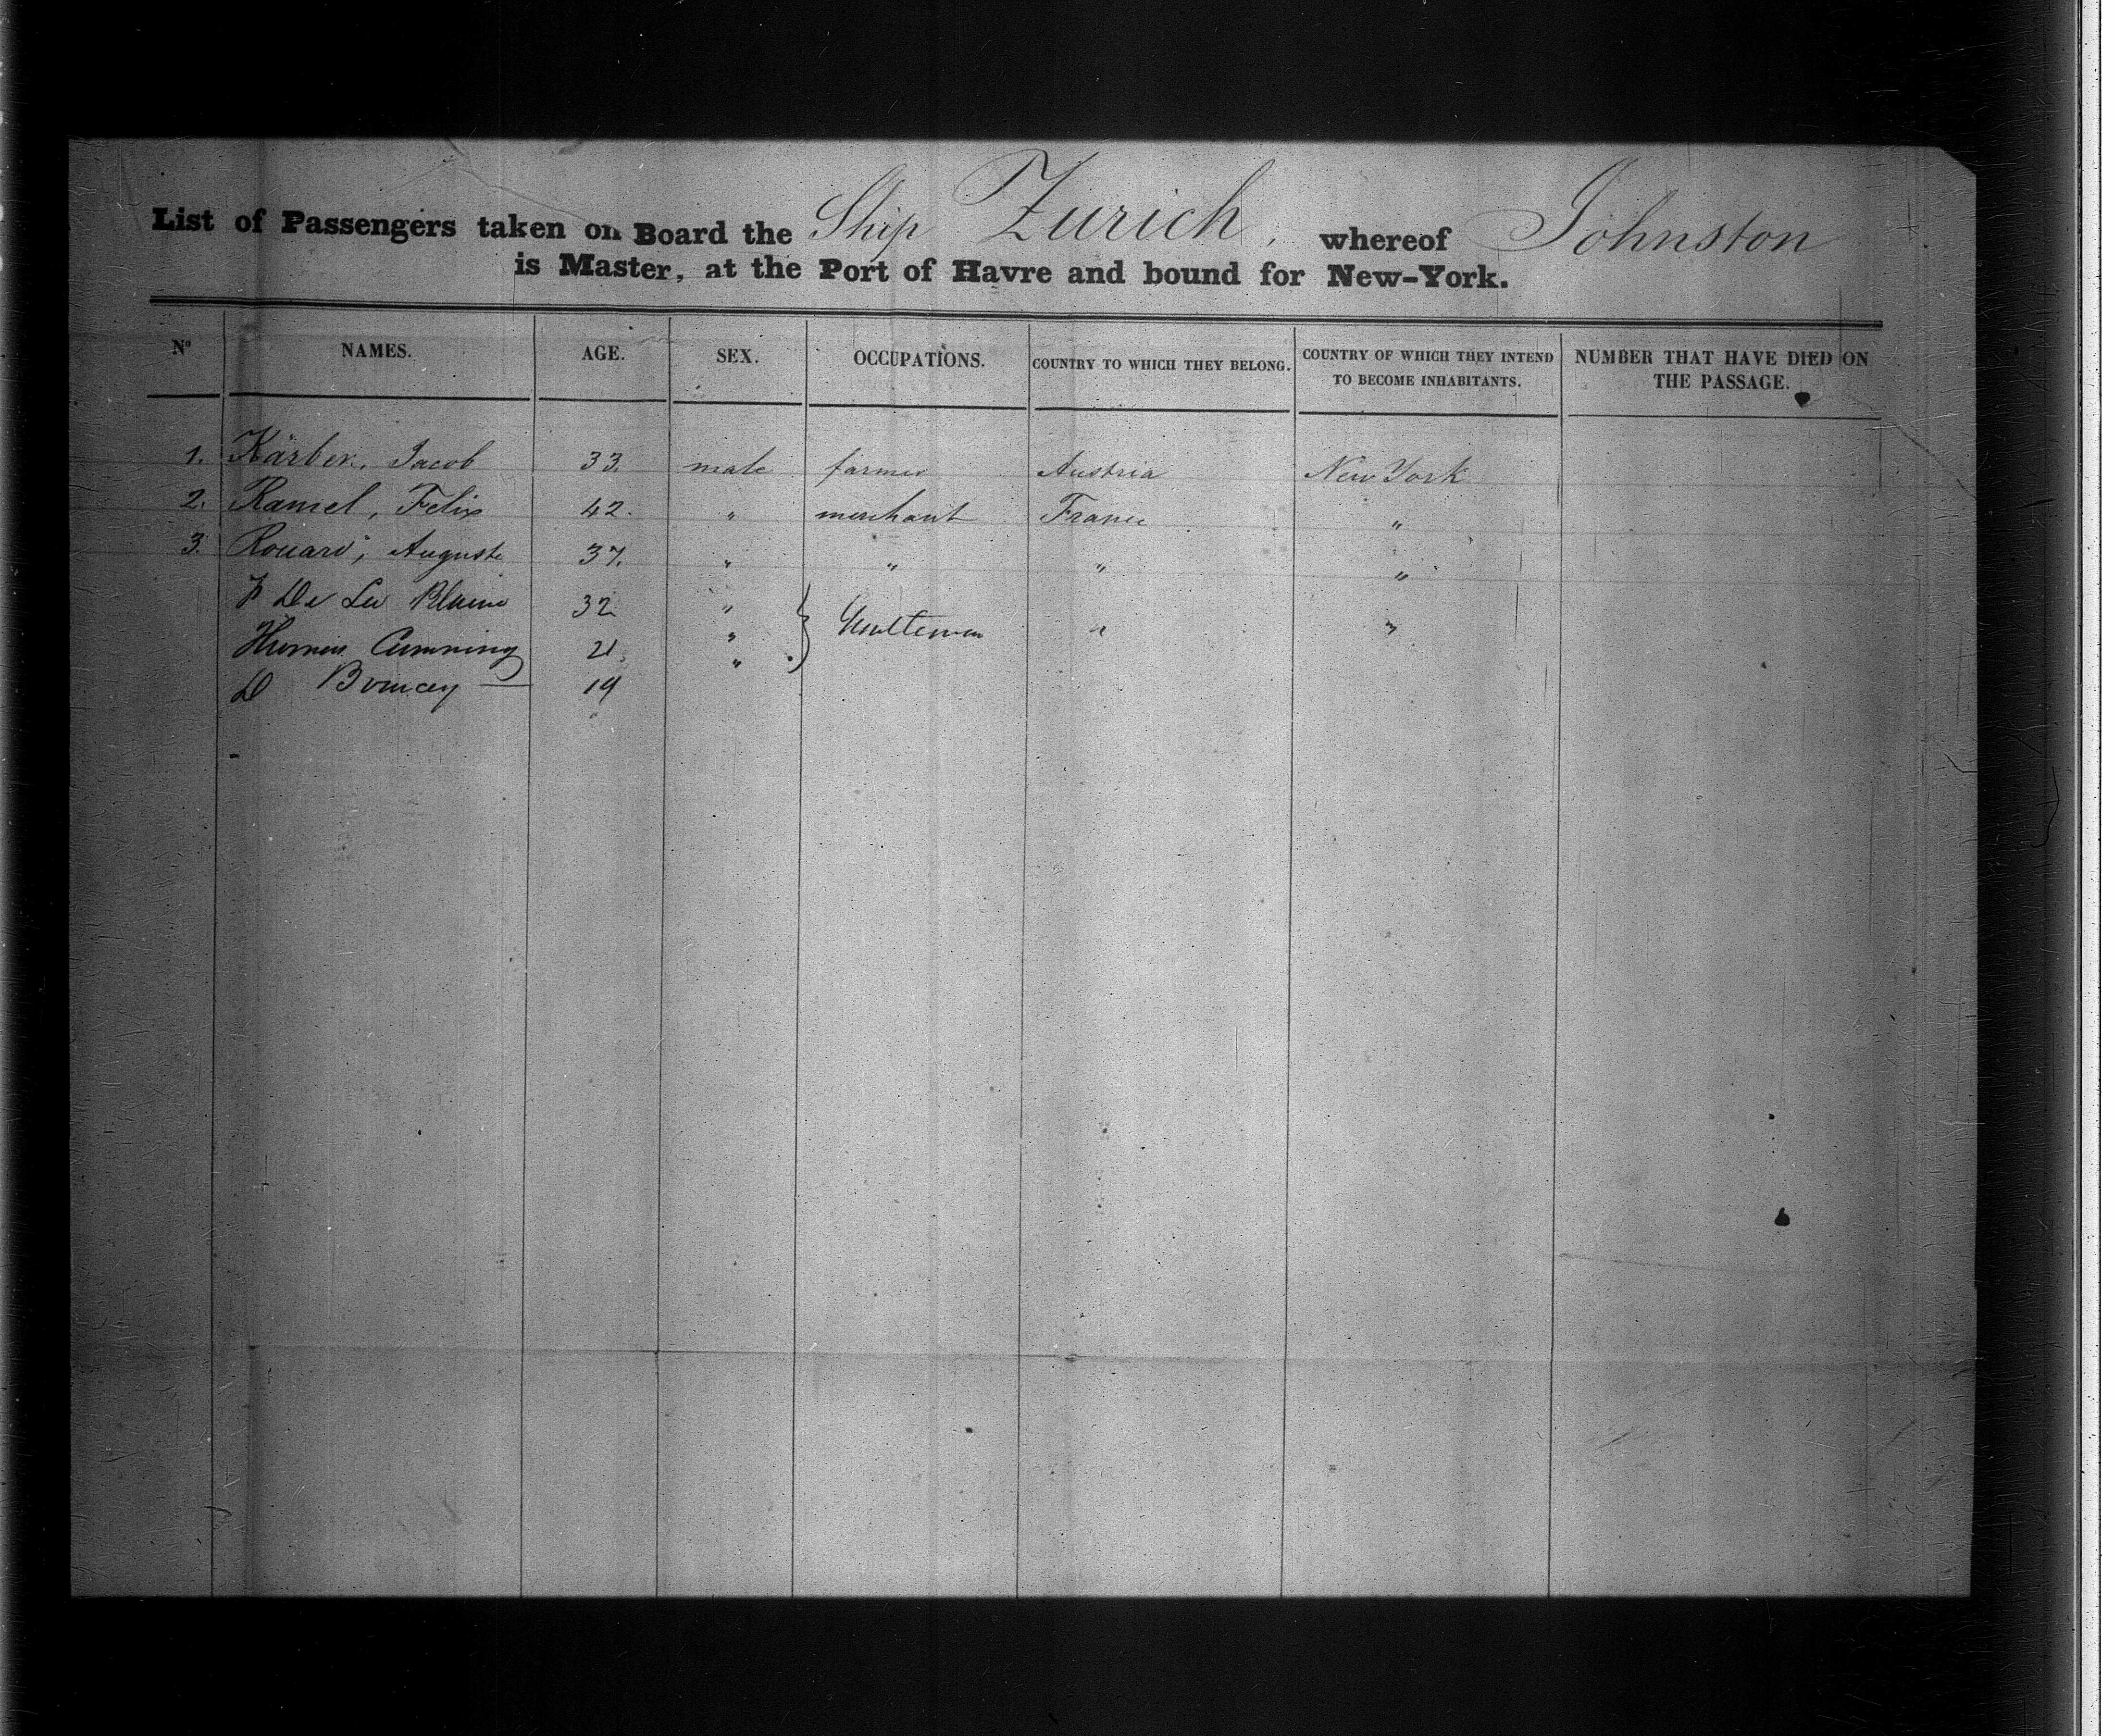 List of Passengers taken on Board the Ship Zurich, whereof Johnston
is Master, at the Port of Havre and bound for New-York.
Nº NAMES. AGE. SEX. OCCUPATIONS. COUNTRY TO WHICH THEY BELONG. COUNTRY OF WHICH THEY INTEND TO BECOME INHABITANTS. NUMBER THAT HAVE DIED ON THE PASSAGE.
1. Kärber, Jacob 33. male farmer Austria New York
2. Ramel, Felix 42. " merchant France "
3. Rouard, Auguste 37. " " " "
De La 32 "
Cumming 21. " } Gentlemen " "
D 19 "